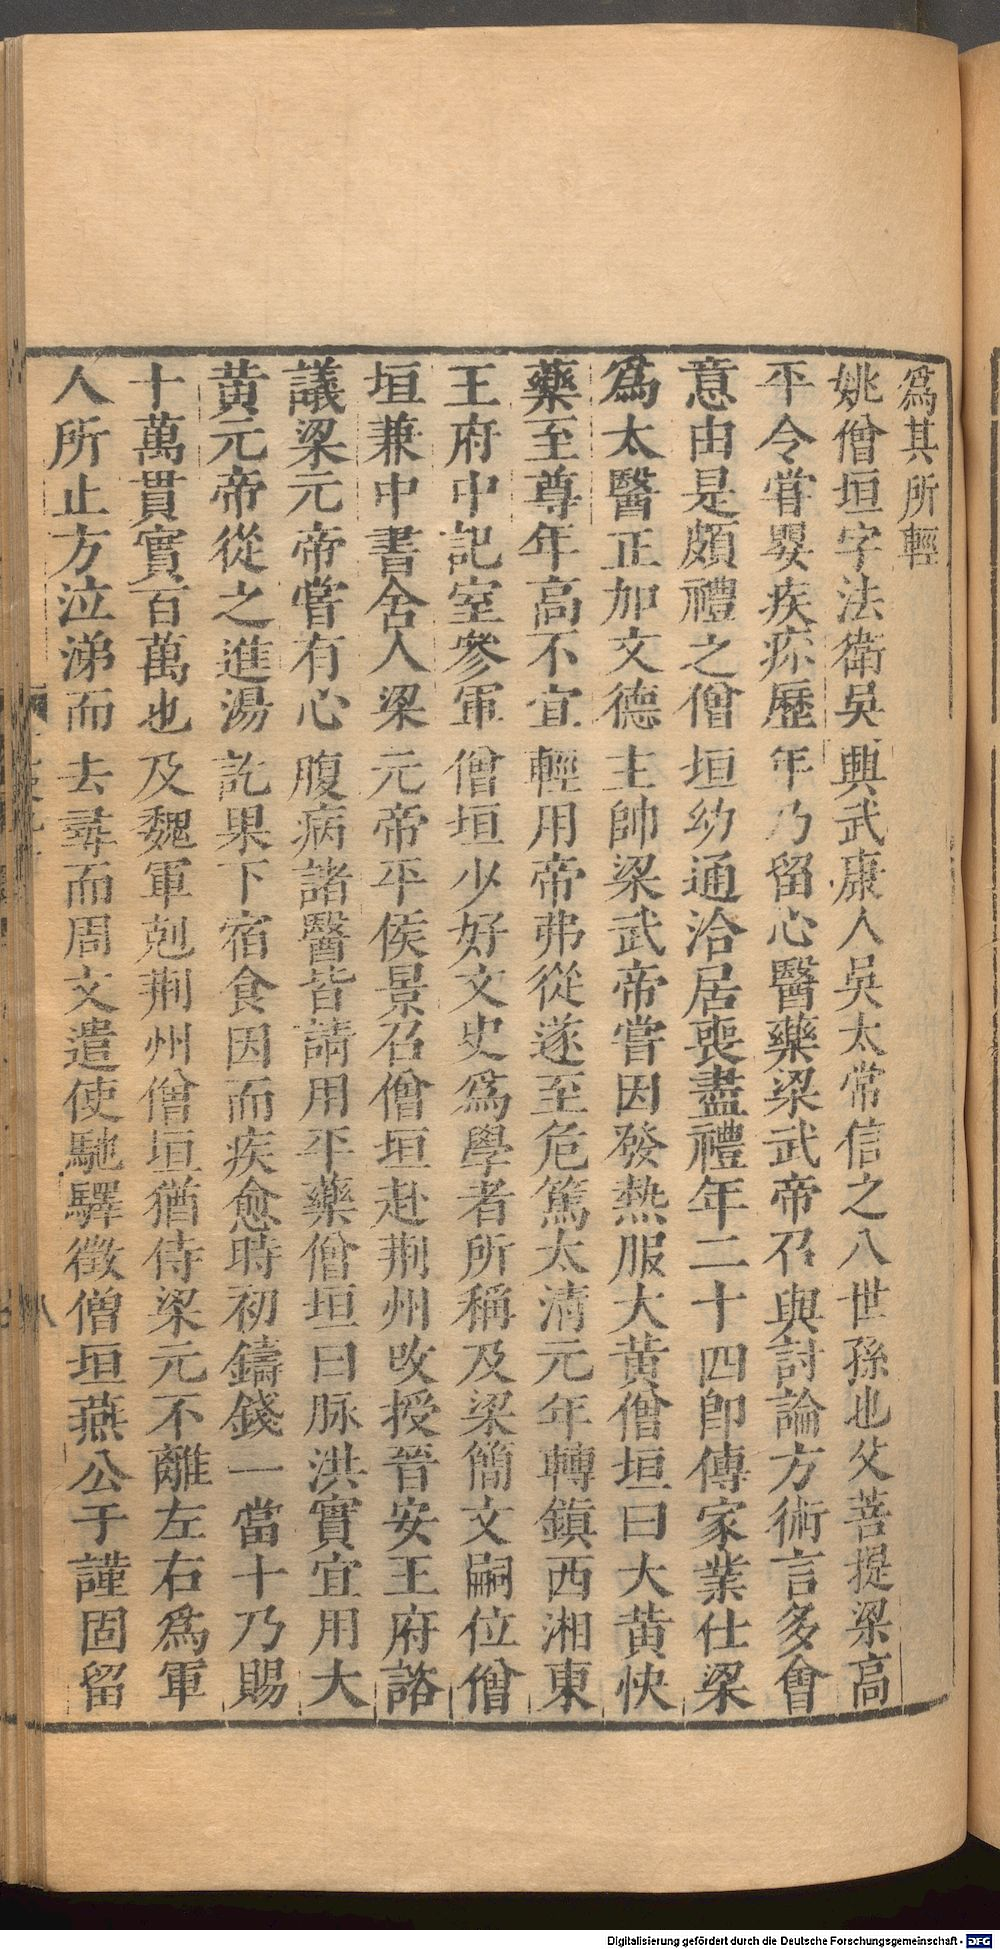 爲其所輕
姚僧垣字法衛吳興武康人吳太常信之八世孫也父菩提梁高
平令嘗嬰疾疹歷年乃留心醫藥梁武帝召與討論方術言多會
意由是頗禮之僧垣幼通洽居喪盡禮年二十四卽傳家業仕梁
爲太醫正加文德主帥梁武帝嘗因發熱服大黃僧垣曰大黃快
藥至尊年高不宜輕用帝弗從遂至危篤太淸元年轉鎭西湘東
王府中記室參軍僧垣少好文史爲學者所稱及梁簡文嗣位僧
垣兼中書舍人梁元帝平侯景召僧垣赴荆州改授晉安王府諮
議梁元帝嘗有心腹病諸醫皆請用平藥僧垣曰脉洪實宜用大
黃元帝從之進湯訖果下宿食因而疾愈時初鑄錢一當十乃賜
十萬貫實百萬也及魏軍剋荆州僧垣猶侍梁元不離左右爲軍
人所止方泣涕而去尋而周文遣使馳驛徵僧垣燕公于謹固留
八
Digitalisierung gefördert durch die Deutsche Forschungsgemeinschaft - DFG